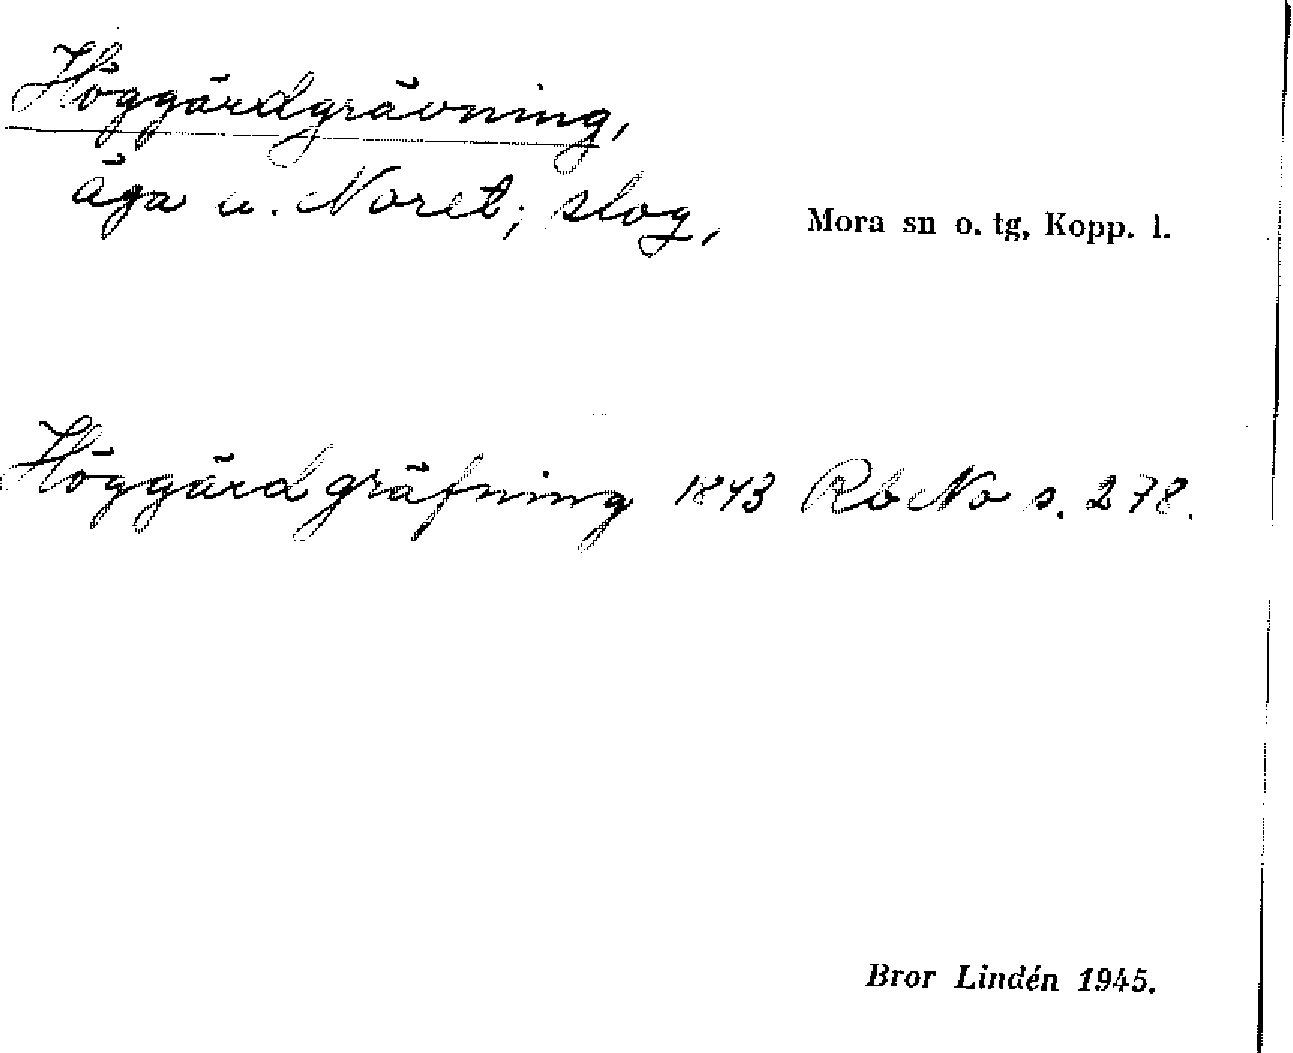 Höggärdgrävning,
äga u. Noret; slog, Mora sn o. tg, Kopp. l.
Höggärdgräfning 1843 Rb No s. 278.
Bror Lindén 1945.